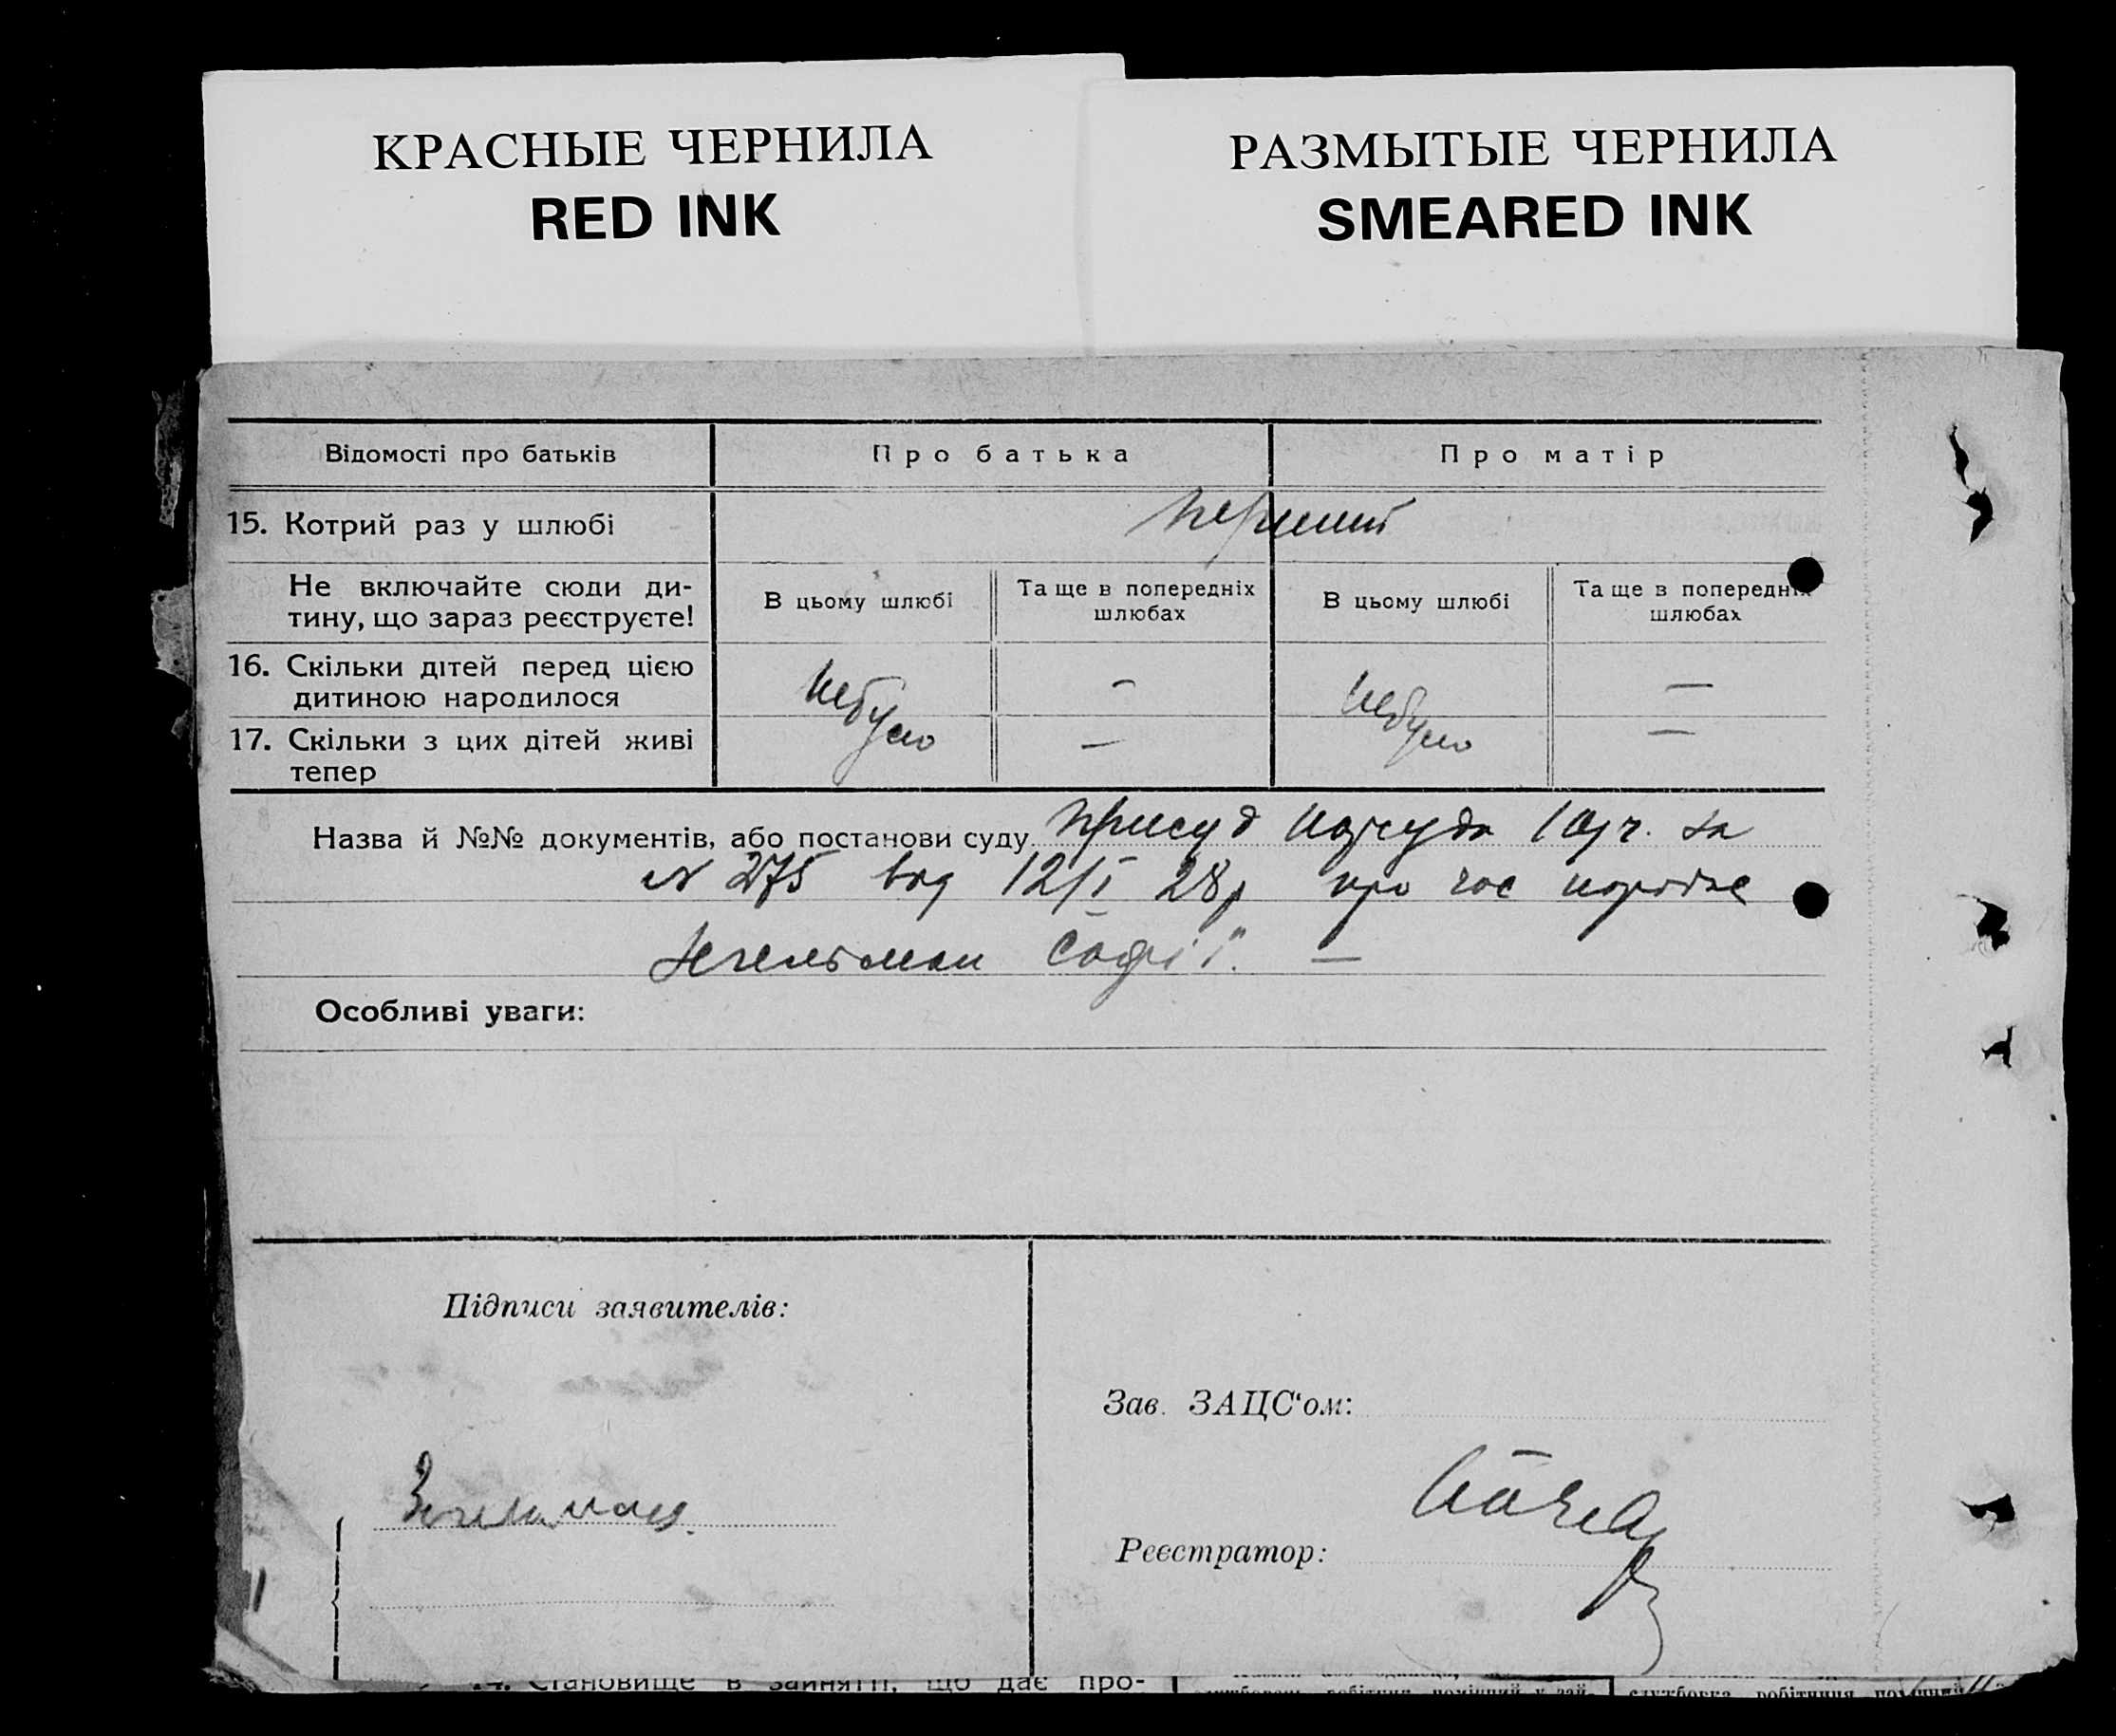 КРАСНЫЕ ЧЕРНИЛА
RED INK
РАЗМЫТЫЕ ЧЕРНИЛА
SMEARED INK
Відомості про батьків
Про батька
Про матір
15. Котрий раз у шлюбі
перший
Не включайте сюди ди-
тину, що зараз реєструєте!
В цьому шлюбі
Та ще в попередніх
шлюбах
В цьому шлюбі
Та ще в попередніх
шлюбах
16. Скільки дітей перед цією
дитиною народилося
небуло
—
небуло
—
17. Скільки з цих дітей живі
тепер
—
—
Назва й №№ документів, або постанови суду присуд Нарсуда 10 за
№ 275 від 12/I 28р про час
Софії. —
Особливі уваги:
Підписи заявителів:
Зав. ЗАЦС‘ом:
Реєстратор:
14. Становище в занятті, що дає про-